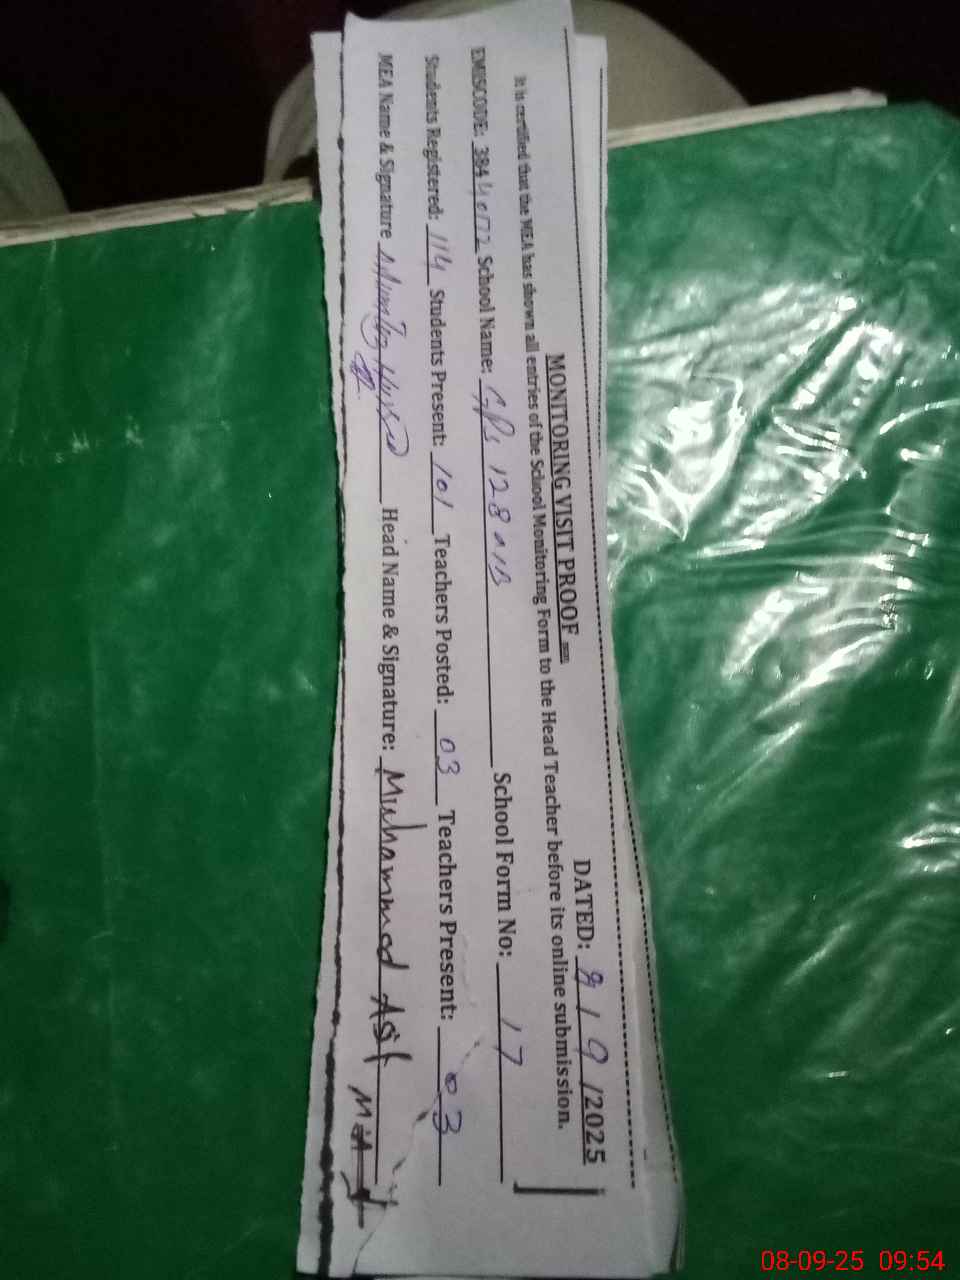 MONITORING VISIT PROOF
DATED: 8 / 9 /2025
It is certified that the MEA has shown all entries of the School Monitoring Form to the Head Teacher before its online submission.
EMISCODE: 38440172 School Name: GPS 128 School Form No: 17
Students Registered: 114 Students Present: 101 Teachers Posted: 03 Teachers Present: 03
MEA Name & Signature Head Name & Signature: Muhammad
08-09-25 09:54